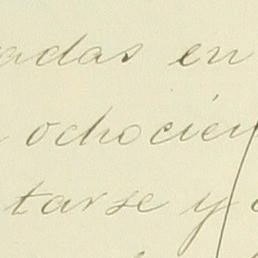 adas en
ochocien
tarse y